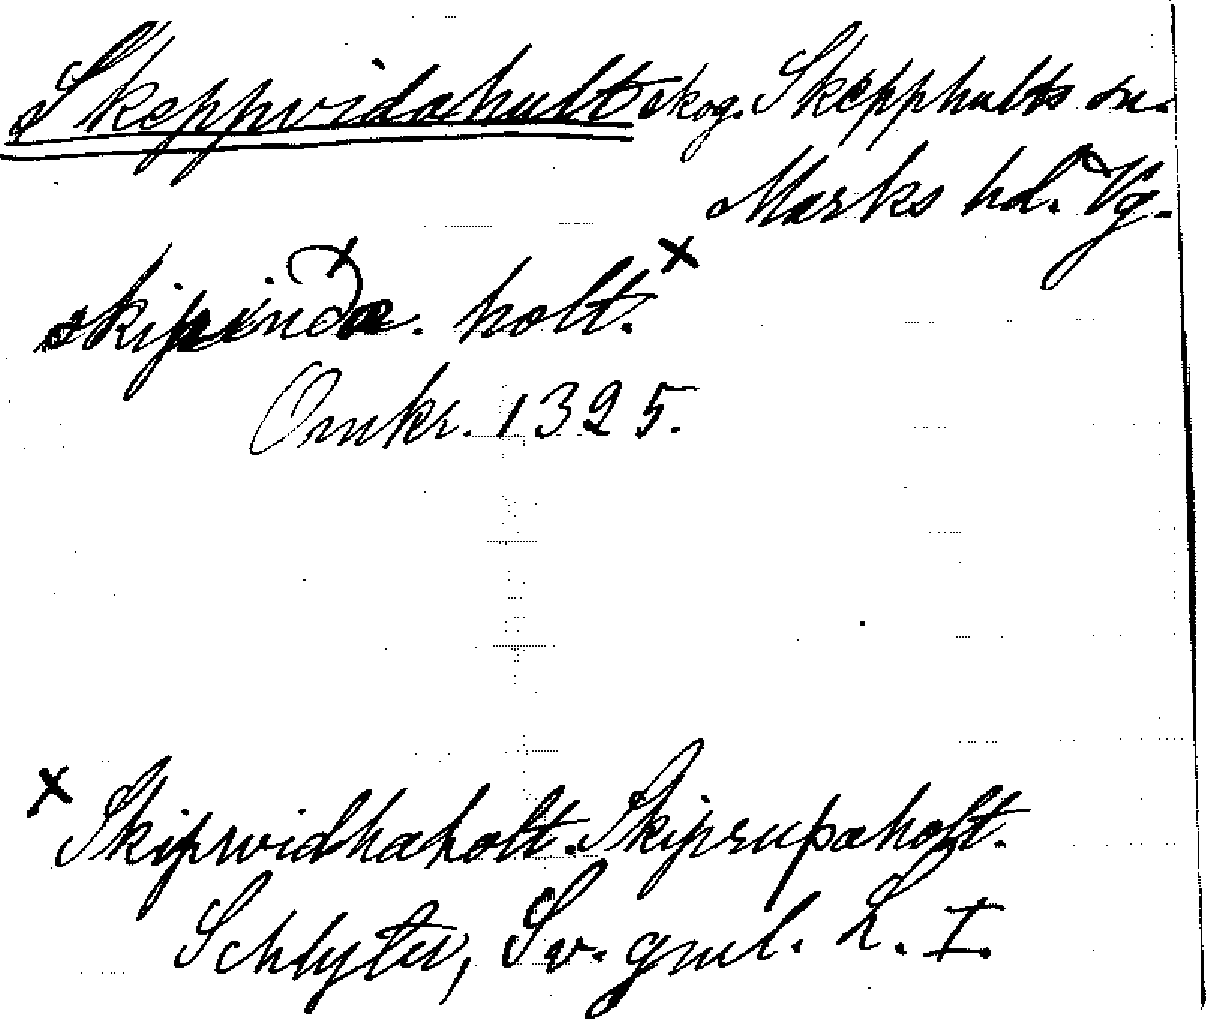 Skeppvidahult skog. Skepphults sn.
Marks hd. Vg.
holt. x
Omkr. 1325.
x Skipwidhaholt. Skiprupaholt.
Schlyter, Sv. gml. L. I.